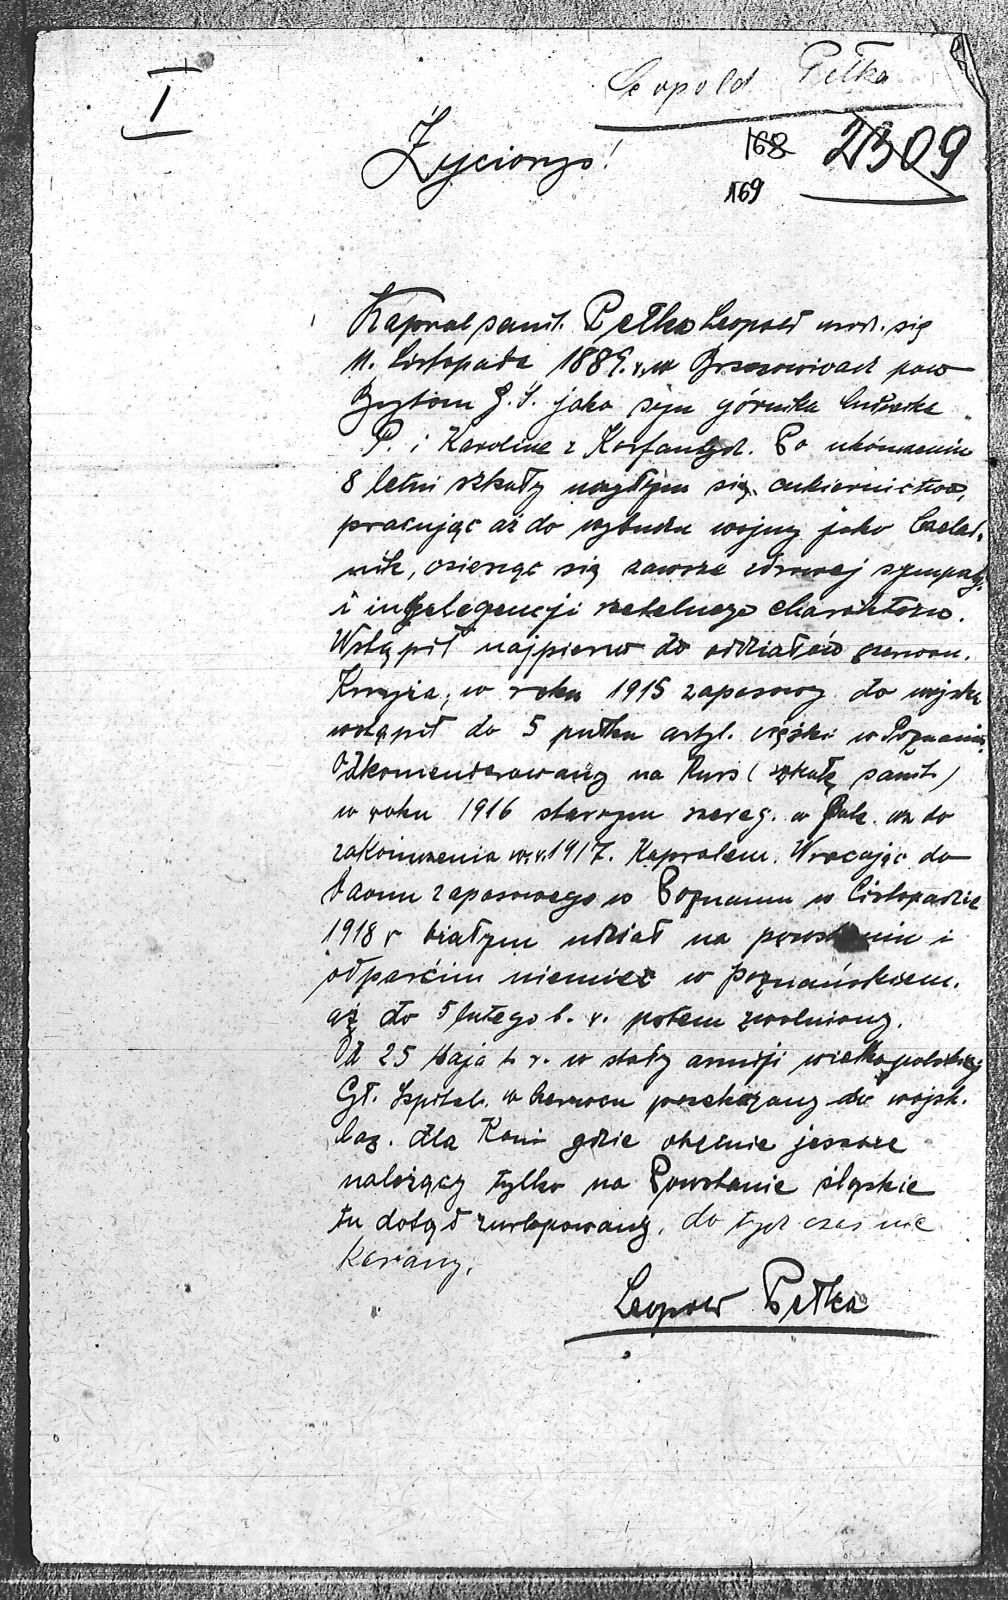 I
Leopold Pełka
Życiorys!
168 2309
169
Kapral sanit. Pełka Leopold urodz. się
11. Listopada 1889. r. w Brzozowicach pow
Bytom G. Ś. jako syn górnika Ludwika
P. i Karoline z Korfantych. Po ukończeniu
8 letni szkoły się cukiernictwa,
pracując aż do wybuchu wojny jako Czelad-
nik, ciesząc się zawsze zdrowej sympaty.
i inteligencji rzetelnego charakteru.
Wstąpił najpierw do oddziałów czerwon.
Krzyża, w roku 1915 zapasowy do wojska
wstąpił do 5 pułku artyl. ciężki w Poznaniu
Odkomenderowany na Kurs (szkołę sanit.)
w roku 1916 starszym szereg. w do
zakończenia w. r. 1917. Kapralem. Wracając do
zapasowego w Poznaniu w Listopadzie
1918 r białym udział na powstaniu i
odparciu niemiec w poznańskiem.
aż do 5 lutego b. r. potem zwolniony.
Od 25 Maja b. r. w stały armji wielkopolskiej
Gł. Szpital. w Czerwcu przekazany do wojsk.
Laz. dla Koni gdzie obecnie jeszcze
należący tylko na Powstanie śląskie
tu dotąd zurlopowany, do tych czas nie
karany.
Leopold Pełka